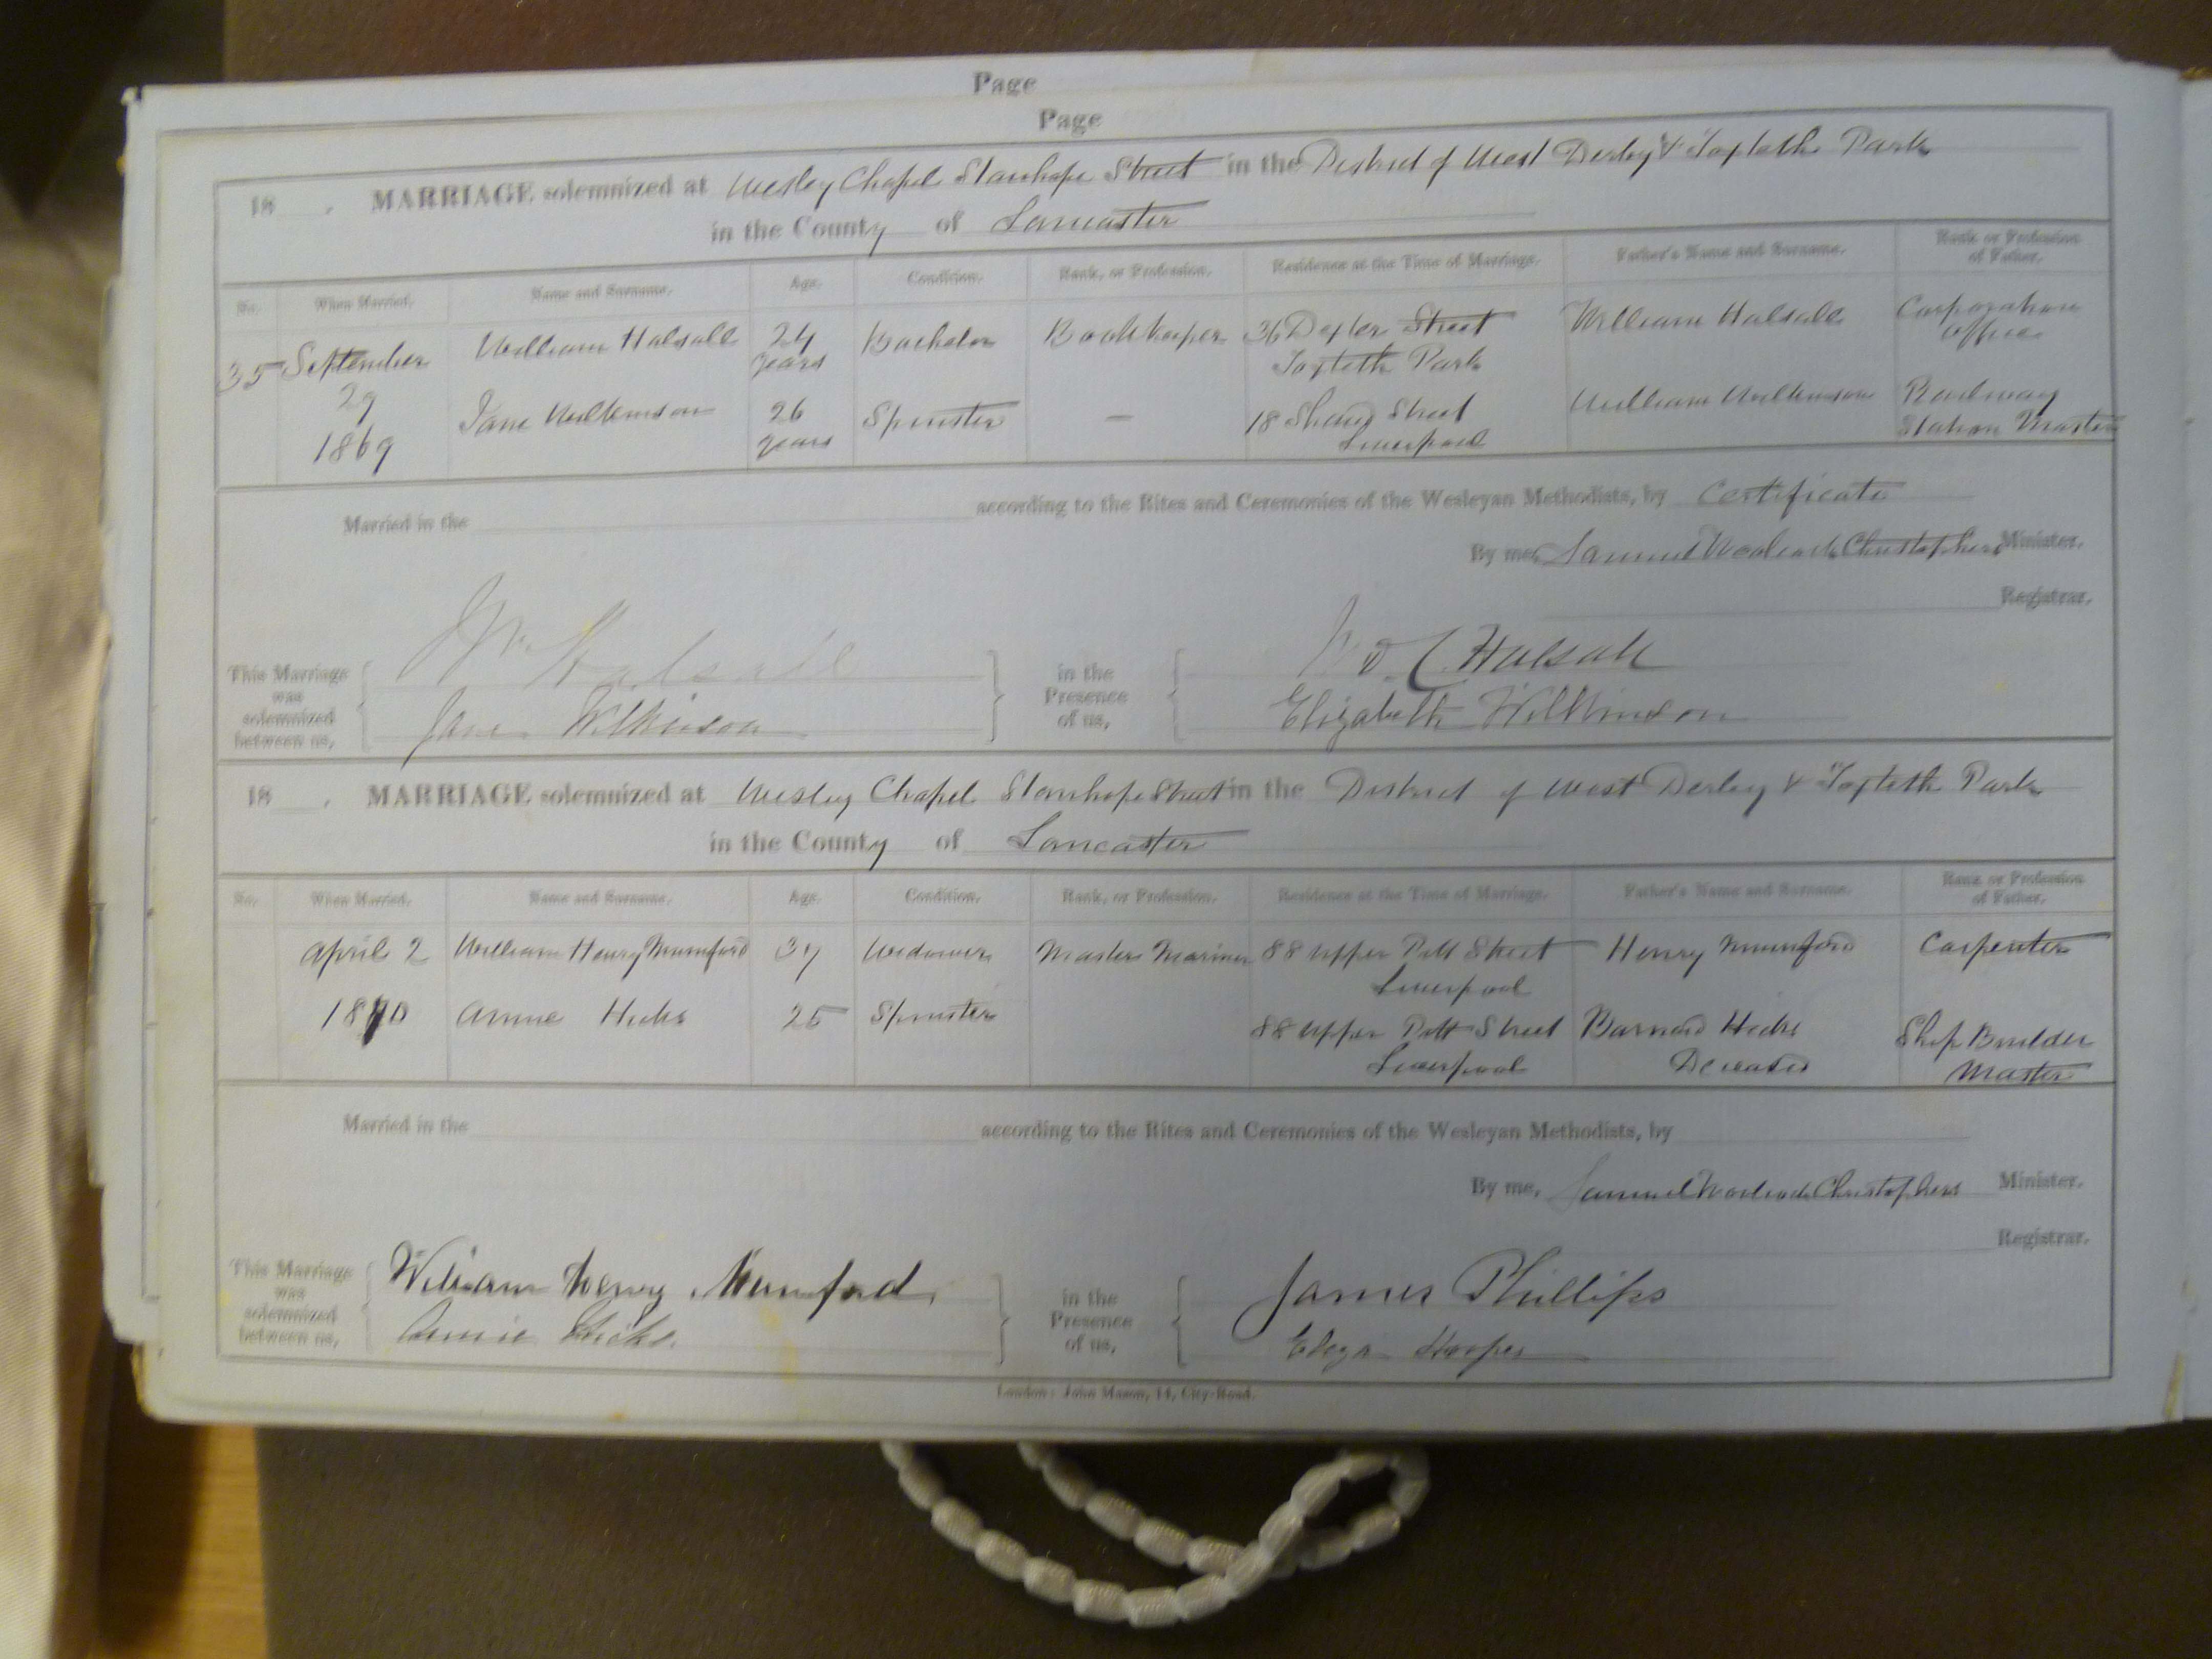 Page
Page
18 . MARRIAGE solemnized at Wesley Chapel Stanhope Street in the District of West Derby & Toxteth Park
in the County of Lancaster
No. When Married. Name and Surname. Age. Condition. Rank, or Profession. Residence at the Time of Marriage. Father's Name and Surname. Rank or Profession of Father.
35 September 29 1869 William Halsall 24 years Bachelor Bookkeeper 36 Dexter Street Toxteth Park William Halsall Corporation office
Jane Wilkinson 26 years Spinster — 18 Street Liverpool William Wilkinson Railway Station Master
Married in the according to the Rites and Ceremonies of the Wesleyan Methodists, by Certificate
By me, Samuel Woolcock Christophers Minister.
Registrar.
This Marriage was solemnized between us, Wm Halsall Jane Wilkinson in the Presence of us, Halsall Elizabeth Wilkinson
18 . MARRIAGE solemnized at Wesley Chapel Stanhope Street in the District of West Derby & Toxteth Park
in the County of Lancaster
No. When Married. Name and Surname. Age. Condition. Rank, or Profession. Residence at the Time of Marriage. Father's Name and Surname. Rank or Profession of Father.
April 2 1870 William Henry Mumford 37 Widower Master Mariner 88 Upper Pitt Street Liverpool Henry Mumford Carpenter
Annie Hicks 25 Spinster 88 Upper Pitt Street Liverpool Barnard Hicks Deceased Ship Builder Master
Married in the according to the Rites and Ceremonies of the Wesleyan Methodists, by
By me, Samuel Woolcock Christophers Minister.
Registrar.
This Marriage was solemnized between us, William Henry Mumford Annie Hicks. in the Presence of us, James Phillips Eliza Hooper
London: John Mason, 14, City-Road.